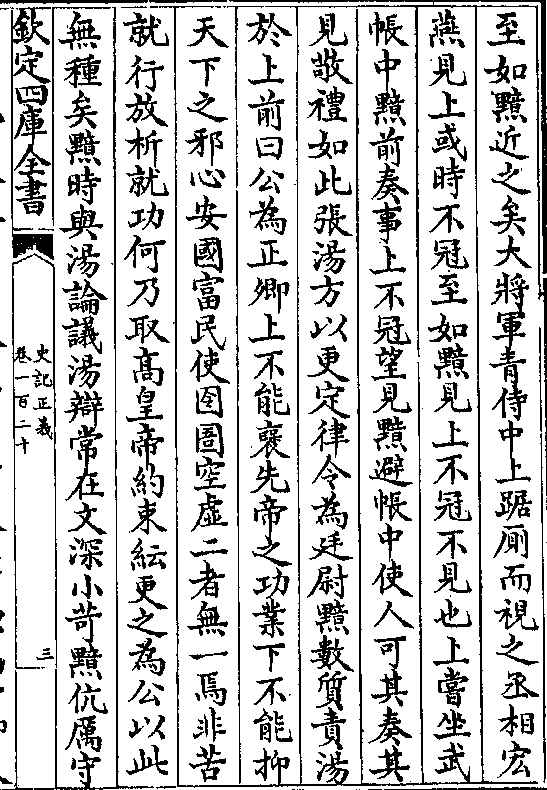 至如黯近之矣大將軍青侍中上踞厠而視之丞相宏
燕見上或時不冠至如黯見上不冠不見也上嘗坐武
帳中黯前奏事上不冠望見黯避帳中使人可其奏其
見敬禮如此張湯方以更定律令為廷尉黯數質責湯
於上前曰公為正卿上不能襃先帝之功業下不能抑
天下之邪心安國富民使囹圄空虛二者無一焉非苦
就行放析就功何乃取髙皇帝約束紜更之為公以此
無種矣黯時與湯論議湯辯常在文深小苛黯伉厲守
欽定四庫全書
史記正義
卷一百二十
三